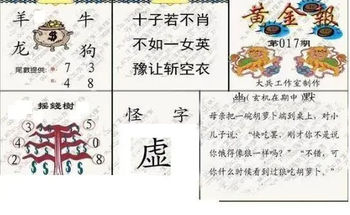 羊 牛
龙 狗
尾數提供：7 3
4 8
十子若不肖
不如一女英
豫让斩空衣
黄金報
第017期
大兵工作室制作
摇錢樹
③ ④
⑤ ②
⓪ ⑧
怪 字
虚
玄机在期中
母亲把一碗胡萝卜端到桌上，对小
儿子说：“快吃罢，刚才你不是说
你饿得像狼一样吗？”“不错，可
你什么时候看到过狼吃胡萝卜。”